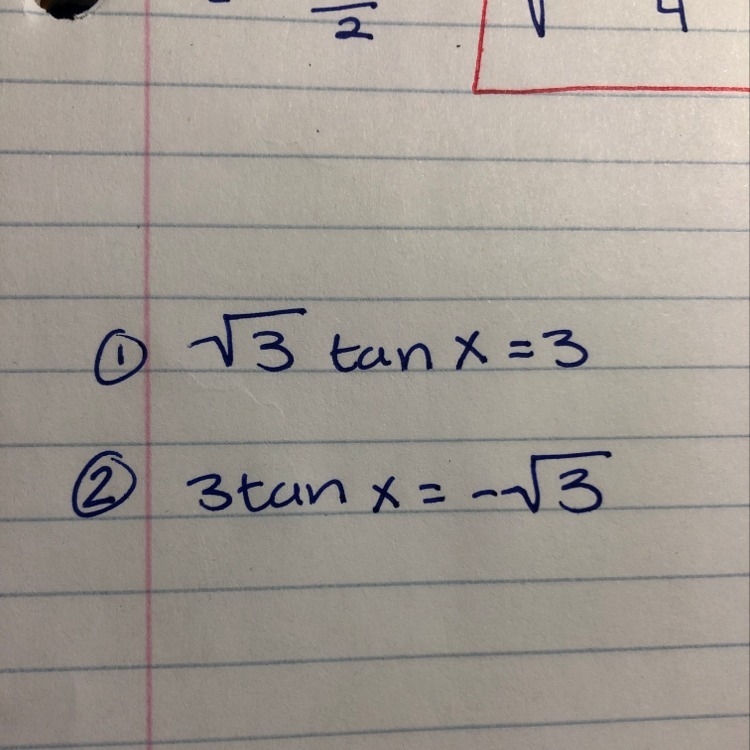 2 √ 4
① √3 tan x = 3
② 3tan x = -√3